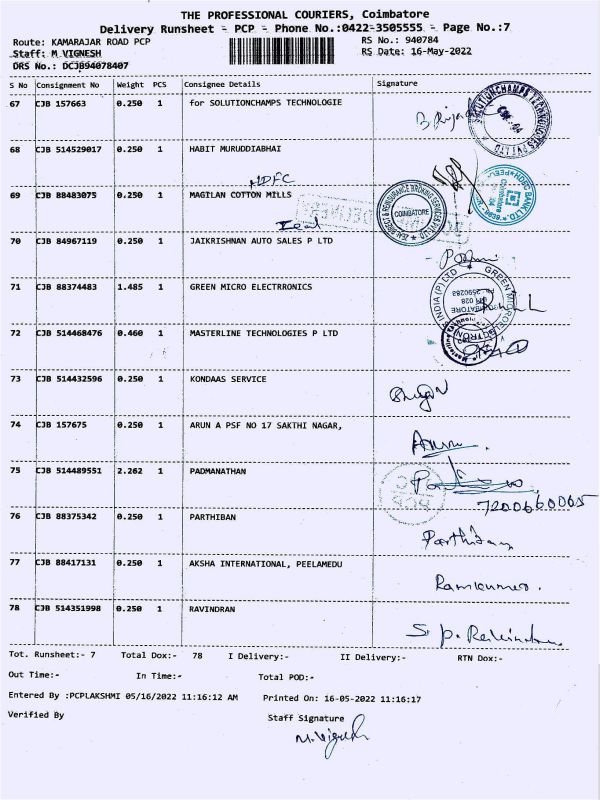 THE PROFESSIONAL COURIERS, Coimbatore
Delivery Runsheet - PCP - Phone No.:0422-3505555 - Page No.:7
Route: KAMARAJAR ROAD PCP RS No.: 940784
Staff: M VIGNESH RS Date: 16-May-2022
DRS No.: DCJB94078407
S No Consignment No Weight PCS Consignee Details Signature
67 CJB 157663 0.250 1 for SOLUTIONCHAMPS TECHNOLOGIE
SOLUTIONCHAMPS TECHNOLOGIES PVT LTD
68 CJB 514529017 0.250 1 HABIT MURUDDIABHAI
HDFC
69 CJB 88483075 0.250 1 MAGILAN COTTON MILLS
COIMBATORE
HDFC BANK LTD.
70 CJB 84967119 0.250 1 JAIKRISHNAN AUTO SALES P LTD
71 CJB 88374483 1.485 1 GREEN MICRO ELECTRRONICS
72 CJB 514468476 0.460 1 MASTERLINE TECHNOLOGIES P LTD
73 CJB 514432596 0.250 1 KONDAAS SERVICE
74 CJB 157675 0.250 1 ARUN A PSF NO 17 SAKTHI NAGAR,
Arun
75 CJB 514489551 2.262 1 PADMANATHAN
7200660065
76 CJB 88375342 0.250 1 PARTHIBAN
Parthiban
77 CJB 88417131 0.250 1 AKSHA INTERNATIONAL, PEELAMEDU
Ramkumar.
78 CJB 514351998 0.250 1 RAVINDRAN
S. P. Ravindran
Tot. Runsheet:- 7 Total Dox:- 78 I Delivery:- II Delivery:- RTN Dox:-
Out Time:- In Time:- Total POD:-
Entered By :PCPLAKSHMI 05/16/2022 11:16:12 AM Printed On: 16-05-2022 11:16:17
Verified By Staff Signature
M. Vignesh